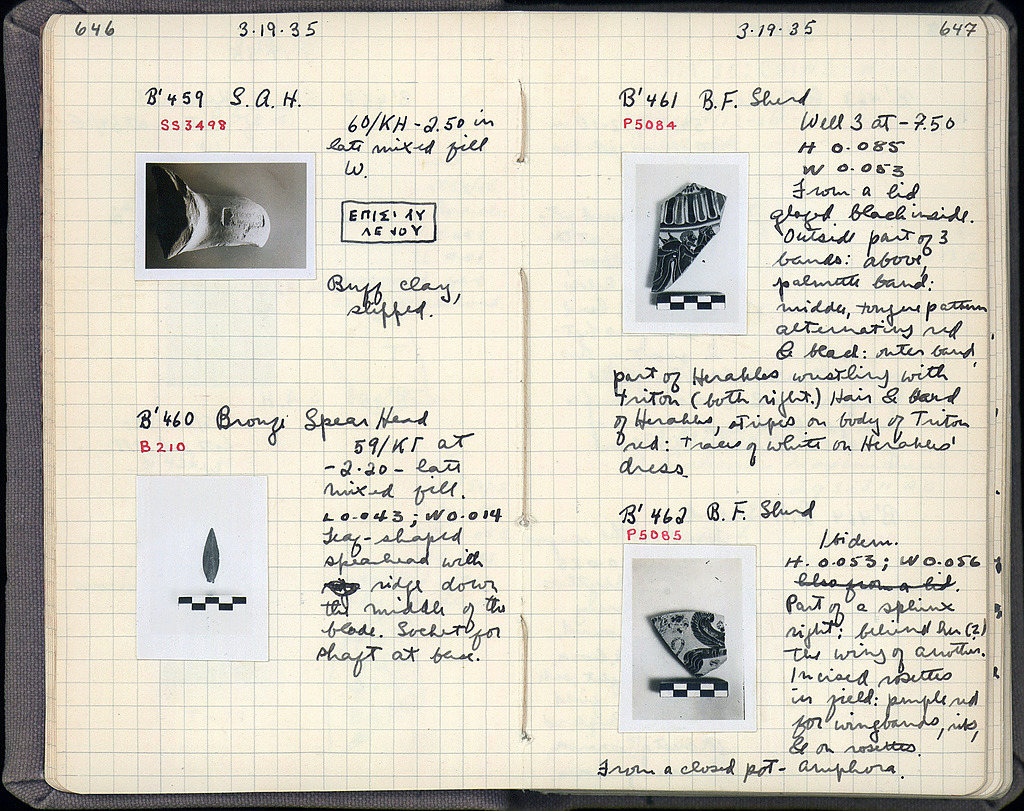 646 3·19·35
B' 459 S. A. H.
SS3498
60/KH - 2.50 in
late mixed fill
W.
ΕΠΙΣΙ ΛΥ
ΛΕ ΝΟΥ
Buff clay,
slipped.
B' 460 Bronze Spear Head
B 210
59/ΚΓ at
-2.20 - late
mixed fill.
L 0.043; W 0.014
Leaf-shaped
spearhead with
ridge down
the middle of the
blade. Socket for
shaft at base.
3·19·35 647
B' 461 B.F. Sherd
P5084
Well 3 at -7.50
H 0.085
W 0.053
From a lid
glazed black inside.
Outside part of 3
bands: above,
palmette band:
middle, tongue pattern
alternating red
& black: outer band,
part of Herakles wrestling with
Triton (both right.) Hair & beard
of Herakles, stripes on body of Triton
red: traces of white on Herakles'
dress.
B' 462 B. F. Sherd
P5085
Ibidem.
H. 0.053; W 0.056
Also from a lid.
Part of a sphinx
right; behind her (?)
the wing of another.
Incised rosettes
in field: purple red
for wingbands, ribs,
& on rosettes.
From a closed pot - amphora.